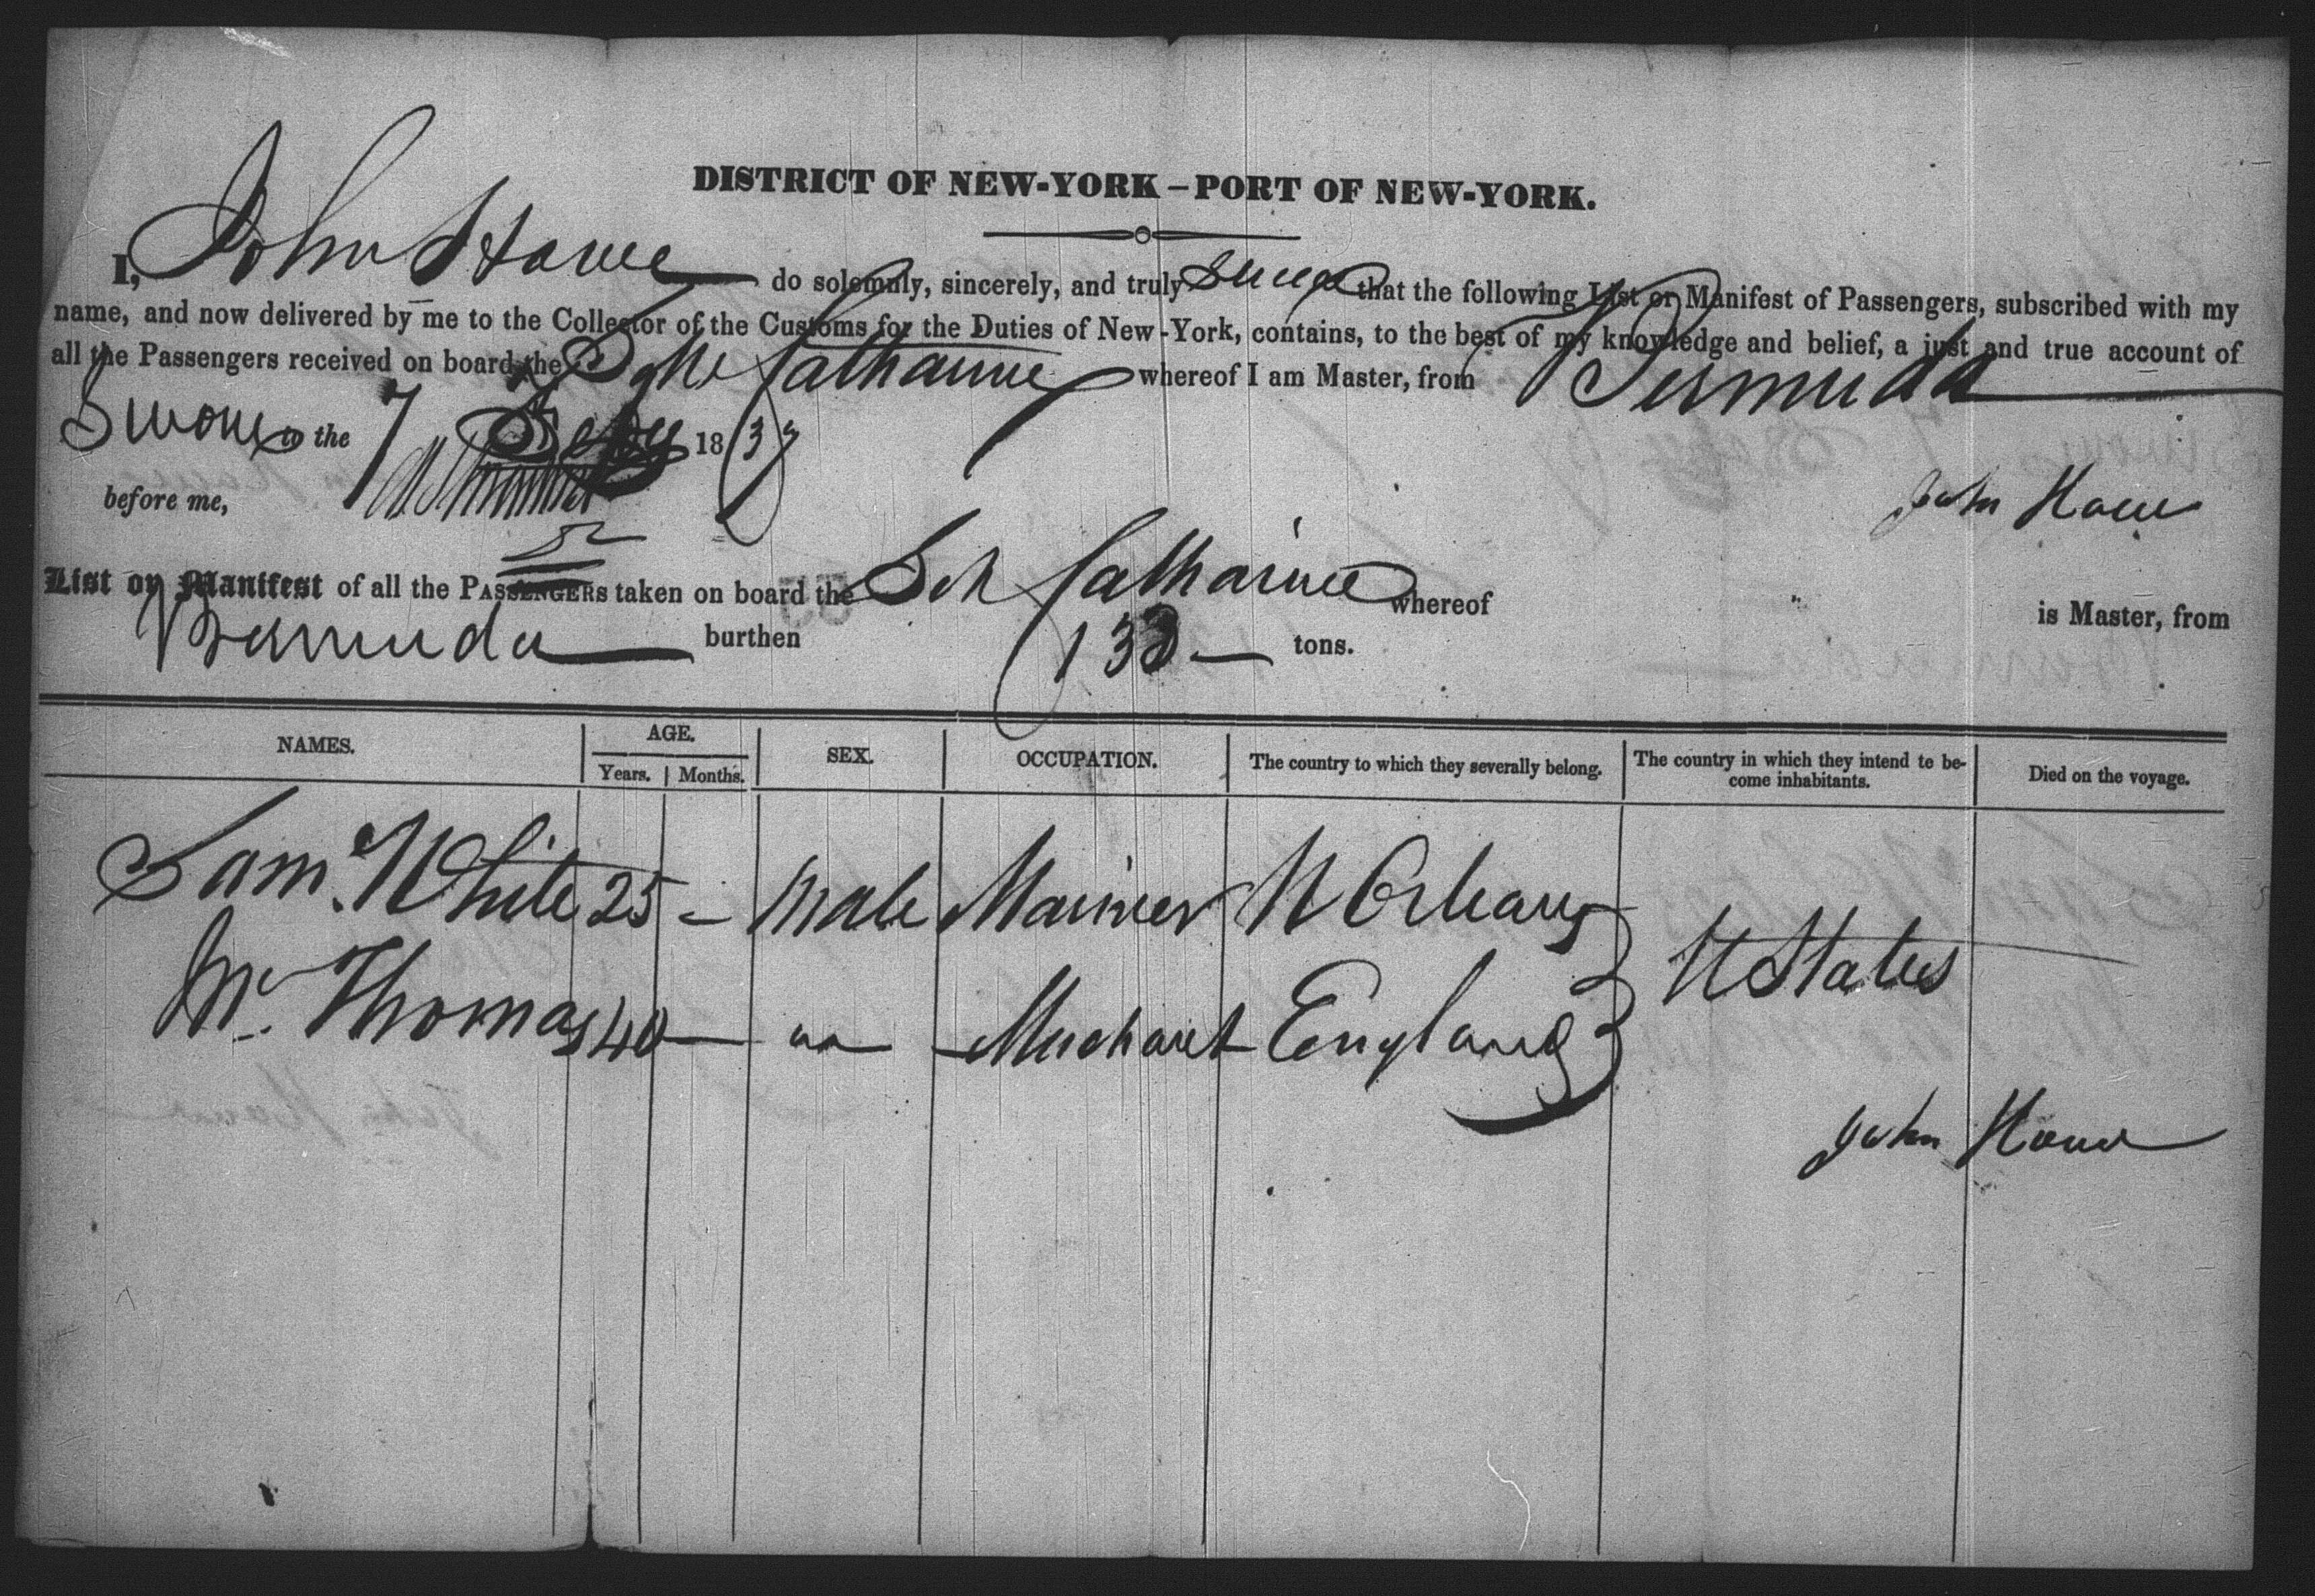 DISTRICT OF NEW-YORK – PORT OF NEW-YORK.
I, John Howe do solemnly, sincerely, and truly swear that the following List or Manifest of Passengers, subscribed with my
name, and now delivered by me to the Collector of the Customs for the Duties of New-York, contains, to the best of my knowledge and belief, a just and true account of
all the Passengers received on board the Catharine whereof I am Master, from Bermuda
Sworn to the 7 18
before me,
John Howe
List or Manifest of all the PASSENGERS taken on board the Sch Catharine whereof " is Master, from
Bermuda burthen 138 tons.
NAMES. AGE. SEX. OCCUPATION. The country to which they severally belong. The country in which they intend to be- Died on the voyage.
Years. Months. come inhabitants.
Saml. White 25 - Male Mariner N Orleans
U States
Mr. Thomas 40 — " — Merchant England
John Howe